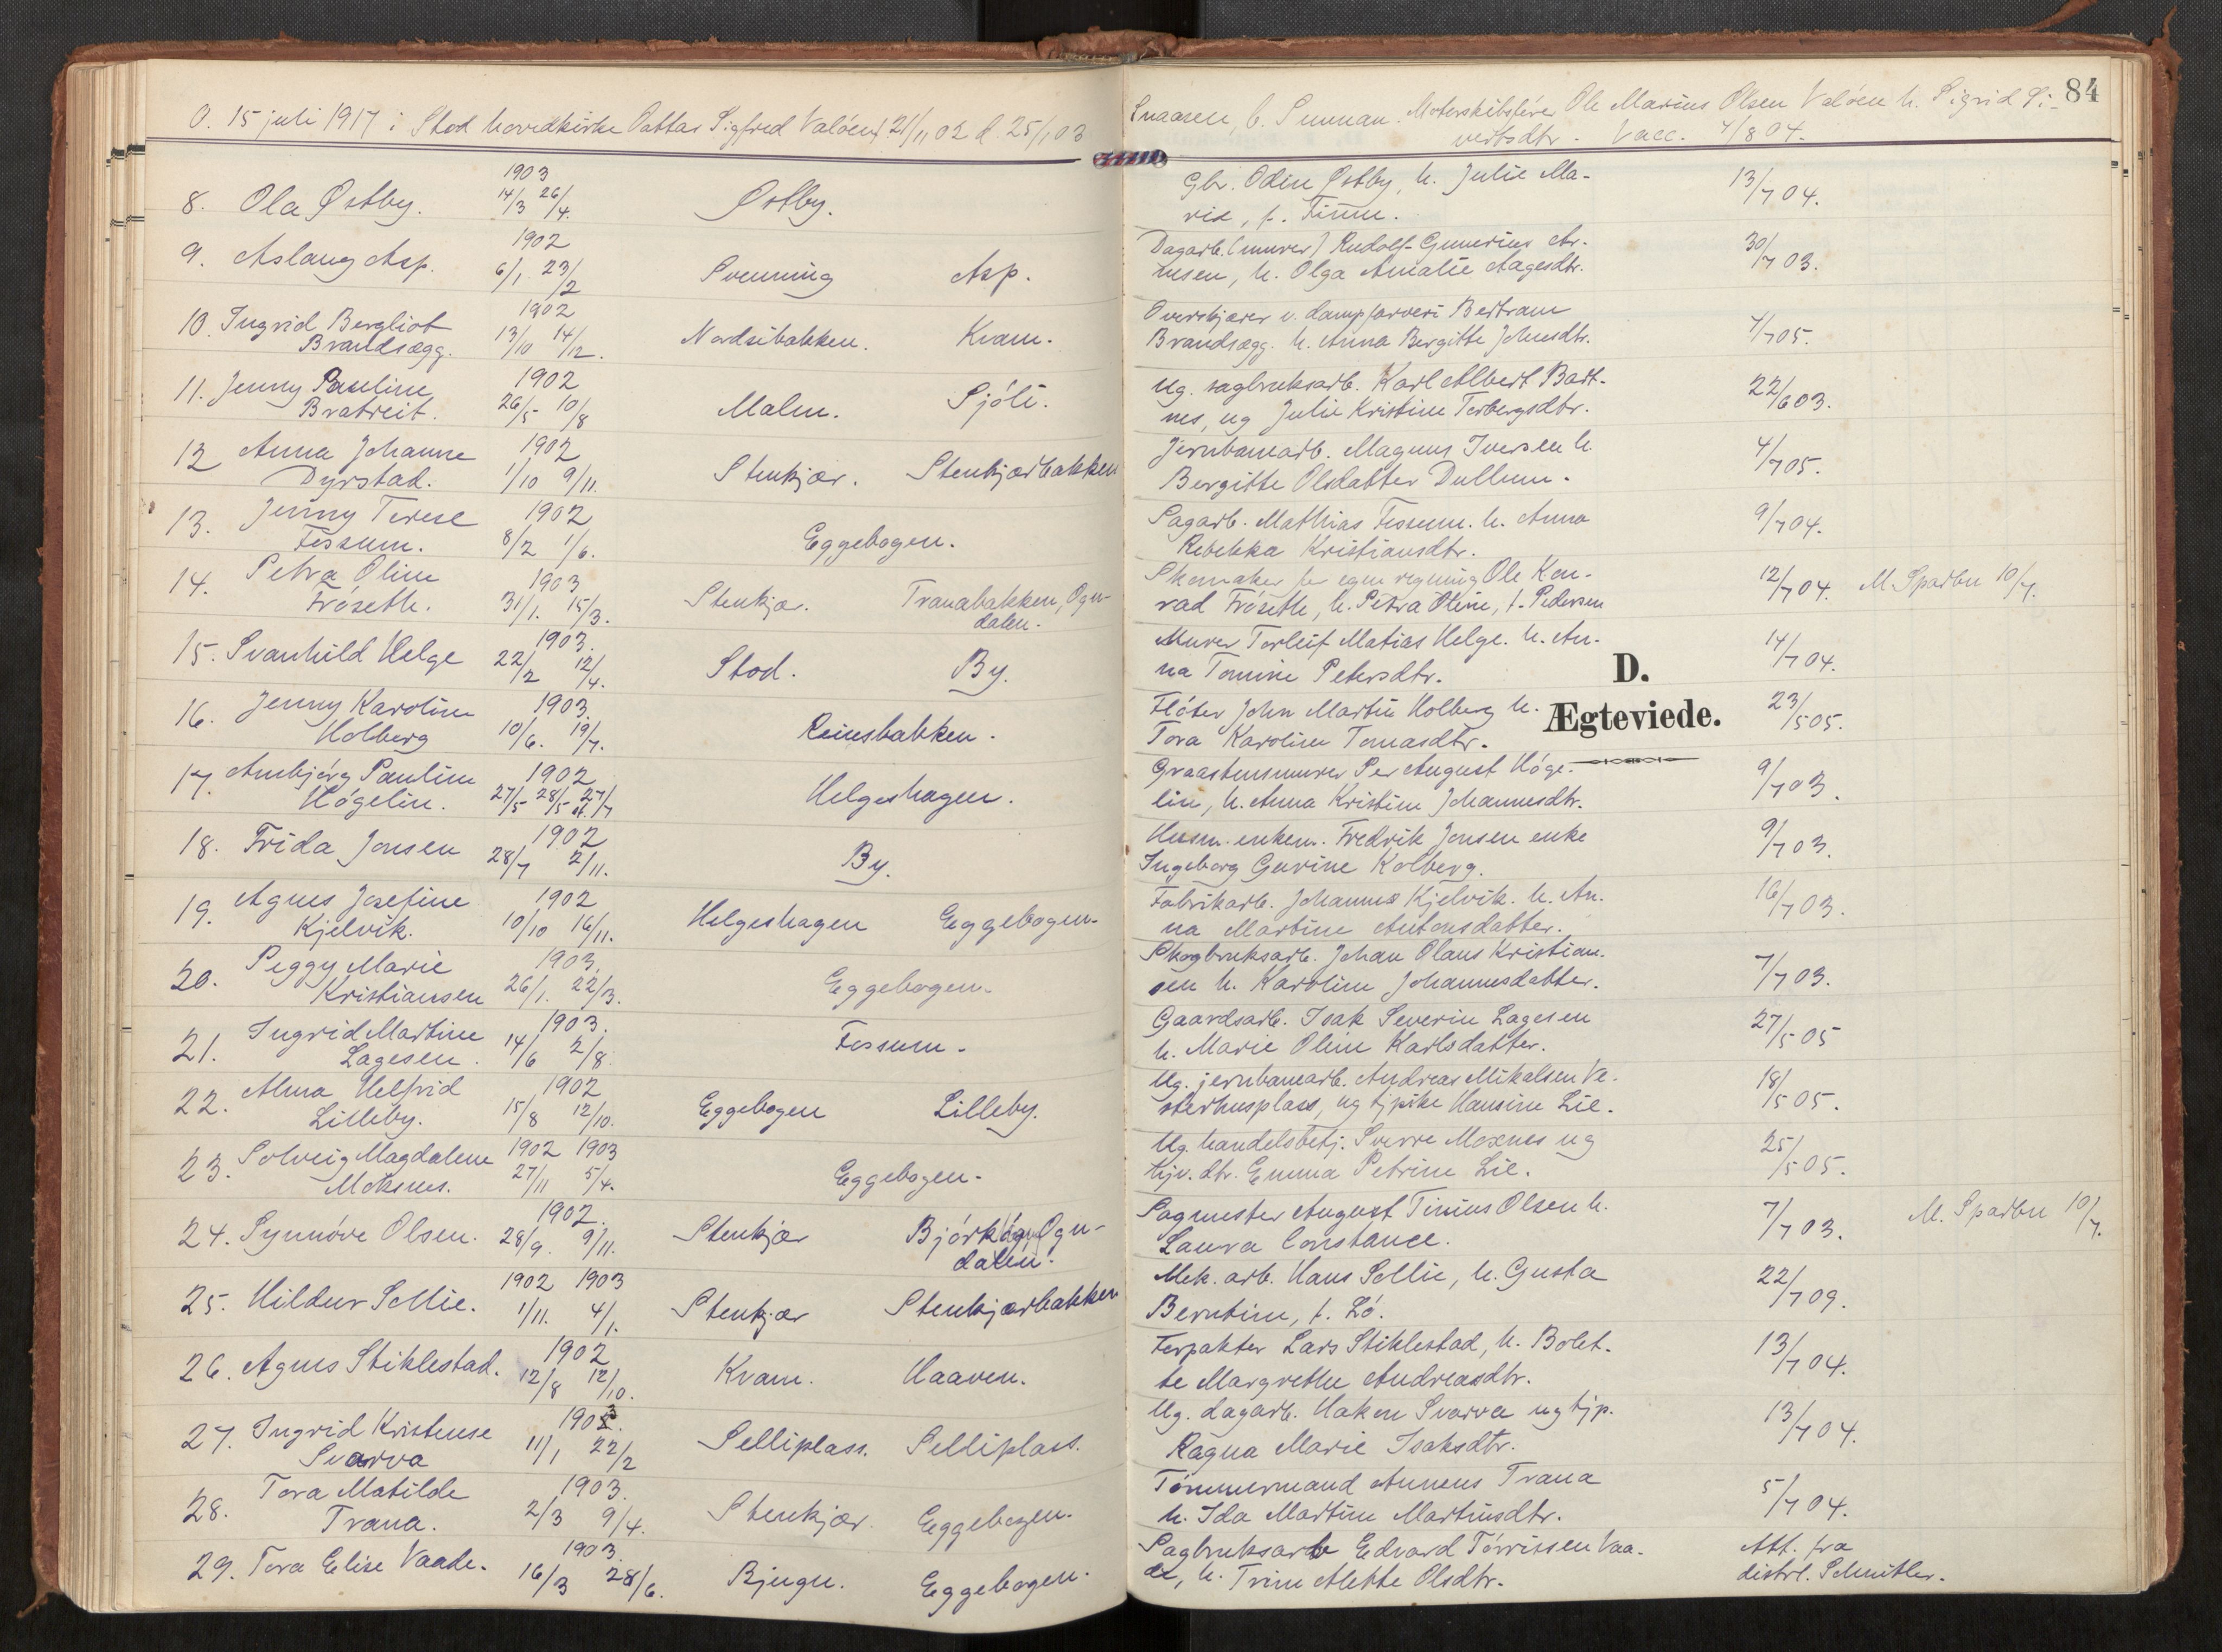 84
O. 15 juli 1917 i Stod hovedkirke Sigfred Valöen f. 21/11 02 d. 25/1 03
Snaasen, b. Sunnan. Motorskibsfører Ole Marius Olsen Valöen h. Sigrid Si-
vertsdtr. Vacc. 4/8 04.
8. Ola Østby. 1903 14/3 26/4. Østby. Gbr. Odin Østby, h. Julie Ma-
rie, f. Finne. 13/7 04.
9. Aslaug Asp. 1902 6/1 23/2 Svenning Asp. Dagarb. (murer) Rudolf Gunerius Ar-
ntsen, h. Olga Amalie Aagesdtr. 30/7 03.
10. Ingrid Bergliot
Brandsægg. 1902 13/10 14/12. Nordsibakken. Kvam. Overskjærer v. dampfarveri Bertram
Brandsægg. h. Anna Bergitte Johnsdtr. 4/7 05.
11. Jenny Pauline
Bratreit. 1902 26/5 10/8 Malm. Sjöli. Ug. sagbruksarb. Karl Albert Bart-
nes, ug Julie Kristine Torbergsdtr. 22/6 03.
12 Anna Johanne
Dyrstad. 1902 1/10 9/11. Stenkjær. Stenkjærbakken Jernbanearb. Magnus Iversen h.
Bergitte Olsdatter Dullum. 4/7 05.
13. Jenny Terese
Fossum. 1902 8/2 1/6. Eggebogen. Sagarb. Mathias Fossum. h. Anna
Rebekka Kristiansdtr. 9/7 04.
14. Petra Oline
Fröseth. 1903 31/1. 15/3. Stenkjær. Tranabakken, Ogn-
dalen. Skomaker for egen regning Ole Kon-
rad Fröseth, h. Petra Oline, f. Pedersen 12/7 04. M. Sparbu 10/7.
15. Svanhild Helge 1903. 22/2 12/4. Stod. By. Murer Torleif Matias Helge. h. An-
na Tomine Petersdtr. 14/7 04.
D.
Ægteviede.
16. Jenny Karoline
Holberg 1903. 10/6. 19/7. Reinsbakken. Flöter John Martin Holberg h.
Tora Karoline Tomasdtr. 23/5 05.
17. Annbjörg Pauline
Högelin. 1902 27/5 28/5 st. 27/7 Helgeshagen. Graastensmurer Per August Höge-
lin, h. Anna Kristine Johannesdtr. 9/7 03.
18. Frida Jonsen 1902 28/7 2/11. By. Husm. enkem. Fredrik Jonsen enke
Ingeborg Gurine Kolberg. 9/7 03.
19. Agnes Josefine
Kjelvik. 1902 10/10 16/11. Helgeshagen Eggebogen. Fabrikarb. Johannes Kjelvik. h. An-
na Martine Antonsdatter. 16/7 03.
20. Peggy Marie
Kristiansen 1903. 26/1. 22/3. Eggebogen. Skogbruksarb. Johan Olaus Kristian-
sen h. Karoline Johannesdatter. 7/7 03.
21. Ingrid Martine
Lagesen. 1903. 14/6 2/8. Fossum. Gaardsarb. Isak Severin Lagesen
h. Marie Oline Karlsdatter. 27/5 05
22. Alma Helfrid
Lilleby. 1902 15/8 12/10. Eggebogen Lilleby. Ug. jernbanearb. Andreas Mikalsen Ve-
sterhusplass, ug tjpike Hansine Lie. 18/5 05.
23. Solveig Magdalene
Moksnes. 1902 1903 27/11 5/4. Eggebogen. Ug. handelsbetj. Sverre Moxnes ug
hjv. dtr. Emma Petrine Lie. 25/5 05.
24. Synnöve Olsen. 1902. 28/9. 9/11. Stenkjær Björkhaug Ogn-
dalen. Sagmester August Tinius Olsen h.
Laura Constance. 7/7 03. M. Sparbu 10/7.
25. Hildur Sellie. 1902 1903 1/11. 4/1. Stenkjær Stenkjærbakken Mek. arb. Hans Sellie, h. Gusta
Berntine, f. Lö. 22/7 09.
26. Agnes Stiklestad. 1902 12/8 12/10. Kvam. Haaven. Forpakter Lars Stiklestad, h. Bolet-
te Margrethe Andreasdtr. 13/7 04.
27. Ingrid Kristense
Svarva 1903. 11/1 22/2 Selliplass. Selliplass. Ug. dagarb. Hakon Svarva ug tjp.
Ragna Marie Isaksdtr. 13/7 04.
28. Tora Matilde
Trana. 1903. 2/3 9/4. Stenkjær. Eggebogen. Tömmermand Annæus Trana
h. Ida Martine Martinsdtr. 5/7 04.
29. Tora Elise Vaade. 1903. 16/3 28/6. Bjugn. Eggebogen. Sagbruksarb Edvard Törrissen Vaa-
de, h. Trine Alette Olsdtr. Att. fra
distrl. Schnitler.